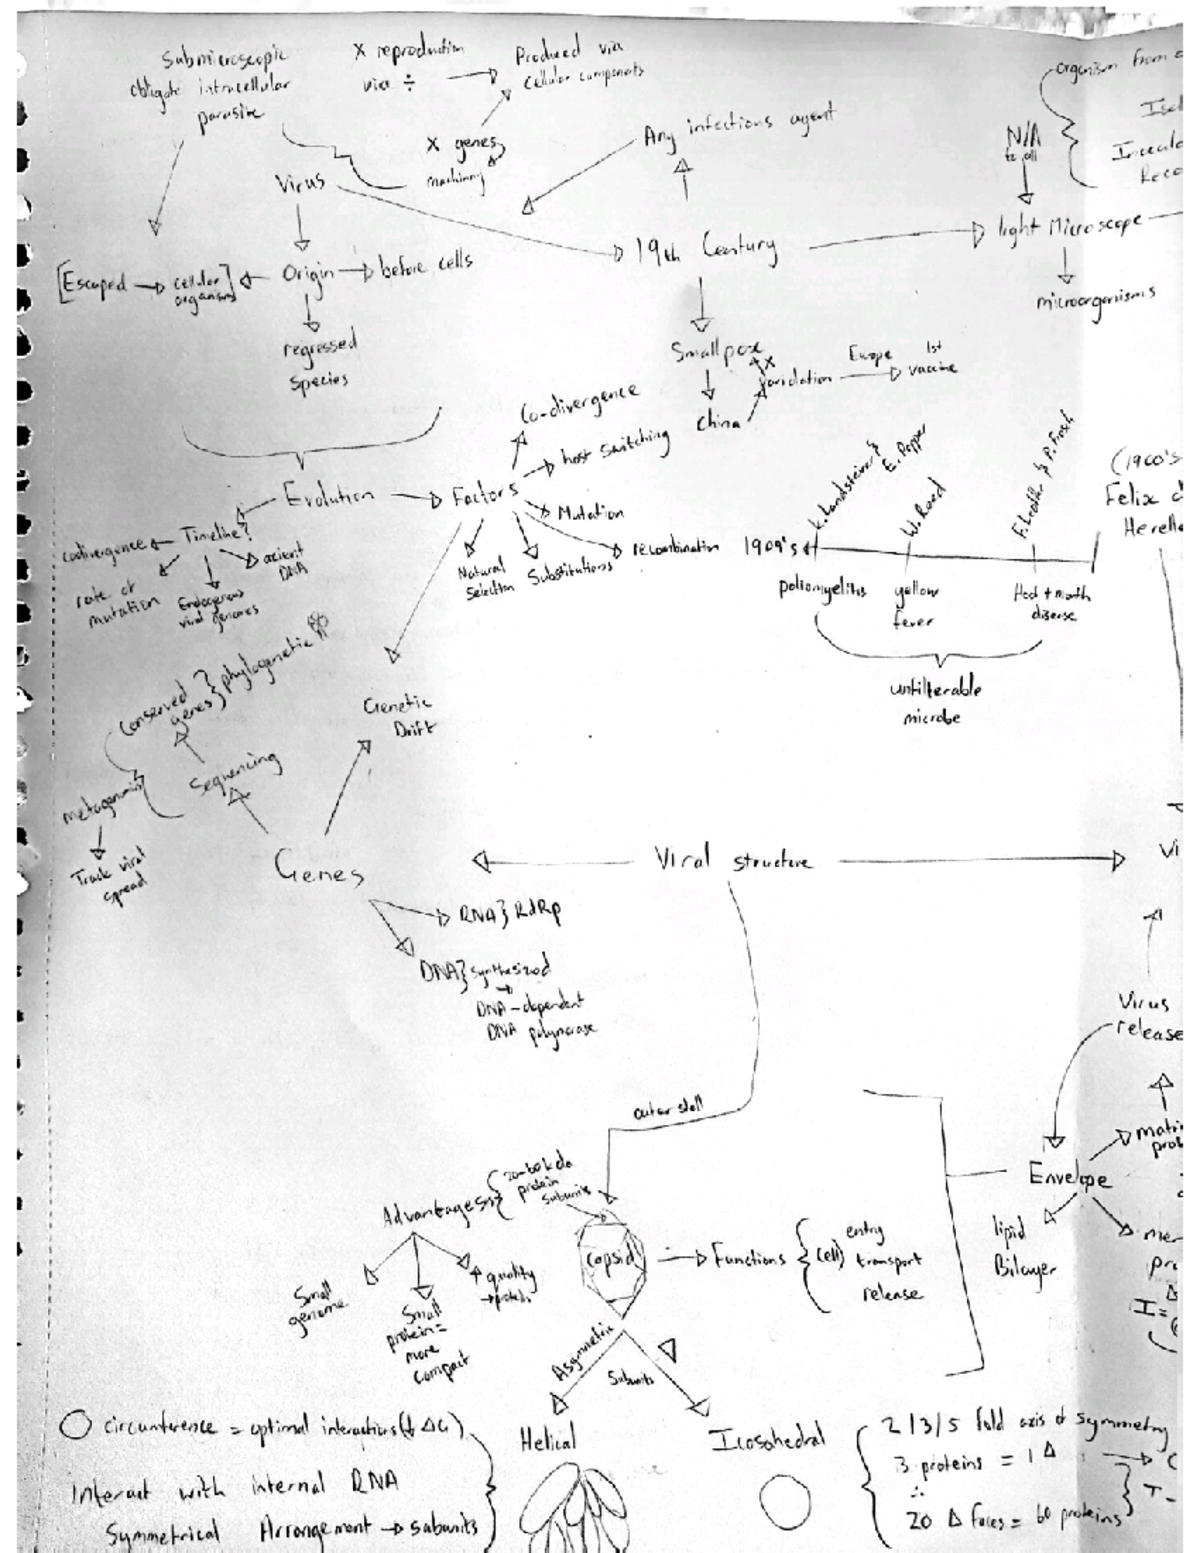 Submicroscopic
obligate intracellular
parasite
X reproduction
via ÷
Produced via
cellular components
X genes
machinery
Any infectious agent
N/A
to all
organism from
Virus
19th Century
light Microscope
microorganisms
[Escaped → cellular
organisms]
Origin
before cells
regressed
species
Smallpox
China
variolation
Europe
1st
vaccine
Evolution
Factors
Co-divergence
host switching
Mutation
recombination
Substitutions
Natural
Selection
Timeline?
codivergence
rate of
mutation
Endogenous
viral genomes
ancient
DNA
1909's
K. Landsteiner &
E. Popper
W. Reed
F. Loffler & P. Frosh
poliomyelitis
yellow
fever
Hood + mouth
disease
unfilterable
microbe
(1900's
Felix d
Herelle
Genetic
Drift
Conserved
genes
phylogenetic
Sequencing
metagenomis
Track viral
spread
Genes
Viral structure
Vi
RNA} RdRp
DNA} synthesized
DNA-dependent
DNA polymerase
Virus
release
outer shell
Envelope
lipid
Bilayer
Advantages
20-60 kda
protein
subunits
Small
genome
Small
protein =
more
compact
↑ quality
→ protein
Capsid
Functions
(cell)
entry
transport
release
Asymmetric
Subunits
Helical
Icosahedral
circumference = optimal interactions (↓ ΔG)
Interact with internal RNA
Symmetrical Arrangement → subunits
2/3/5 fold axis of symmetry
3 proteins = 1 Δ
∴
20 Δ faces = 60 proteins